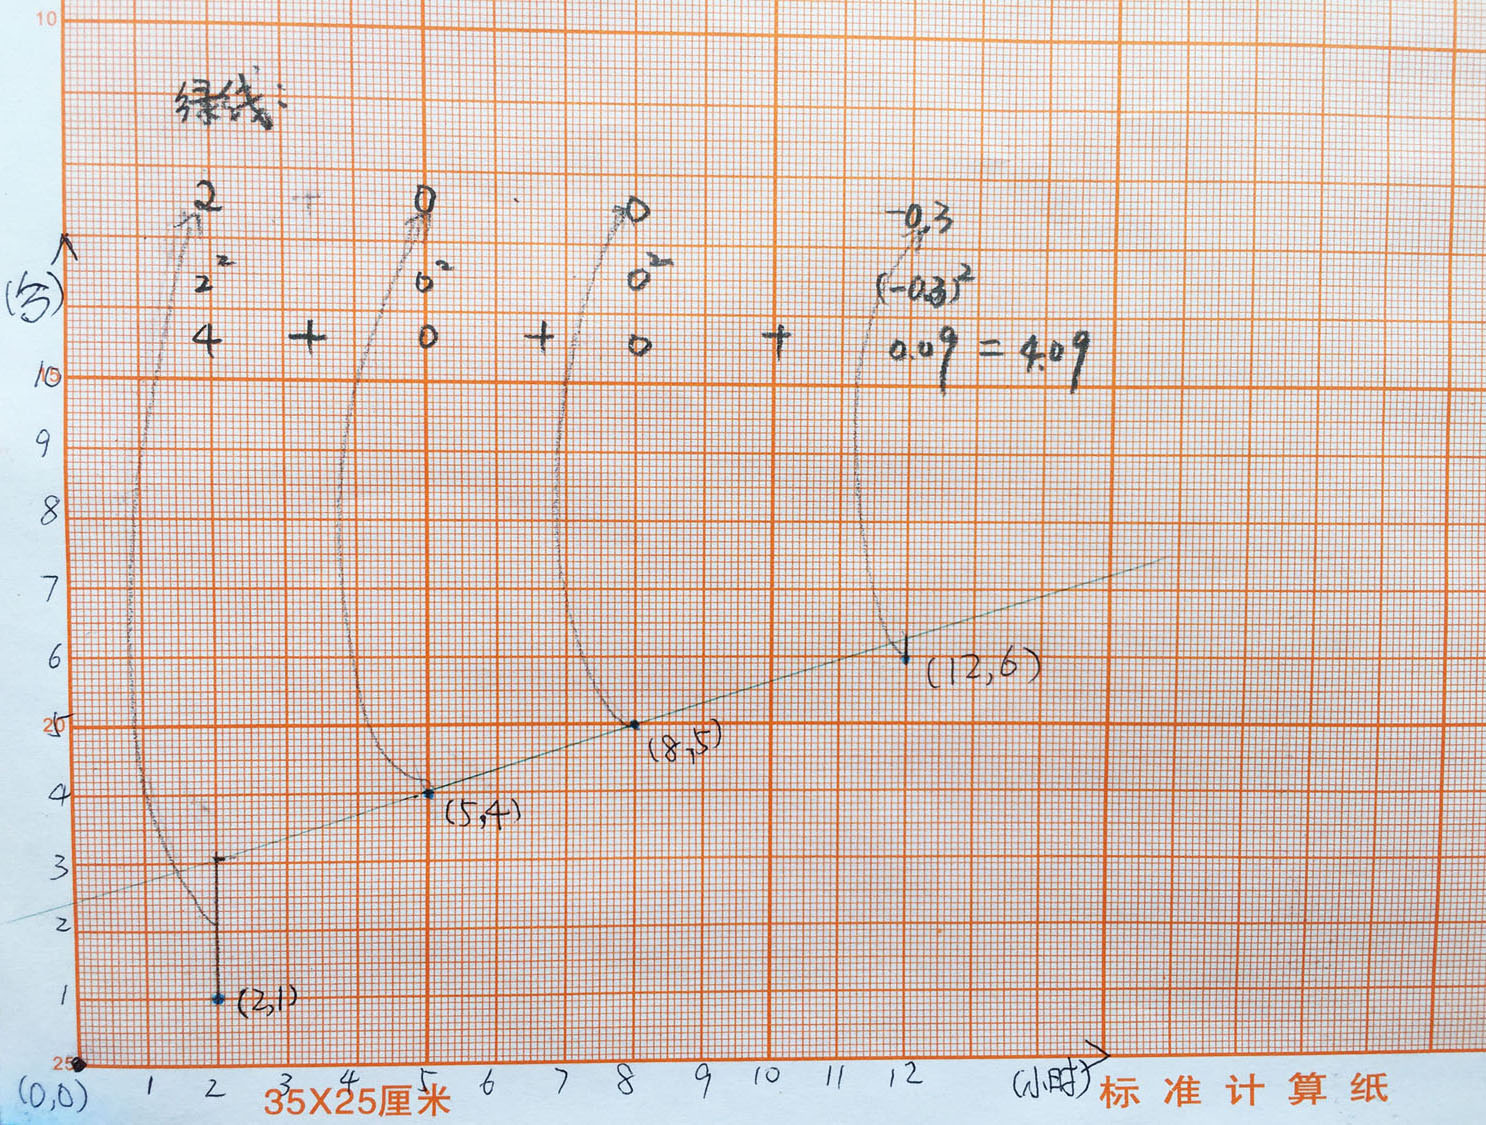 10
绿线:
2 + 0 0 -0.3
2² 0² 0² (-0.3)²
4 + 0 + 0 + 0.09 = 4.09
(分)
10
15
9
8
7
6
(12,6)
5
20
(8,5)
4
(5,4)
3
2
1
(2,1)
25
(0,0) 1 2 3 4 5 6 7 8 9 10 11 12 (小时)
35X25厘米 标准计算纸